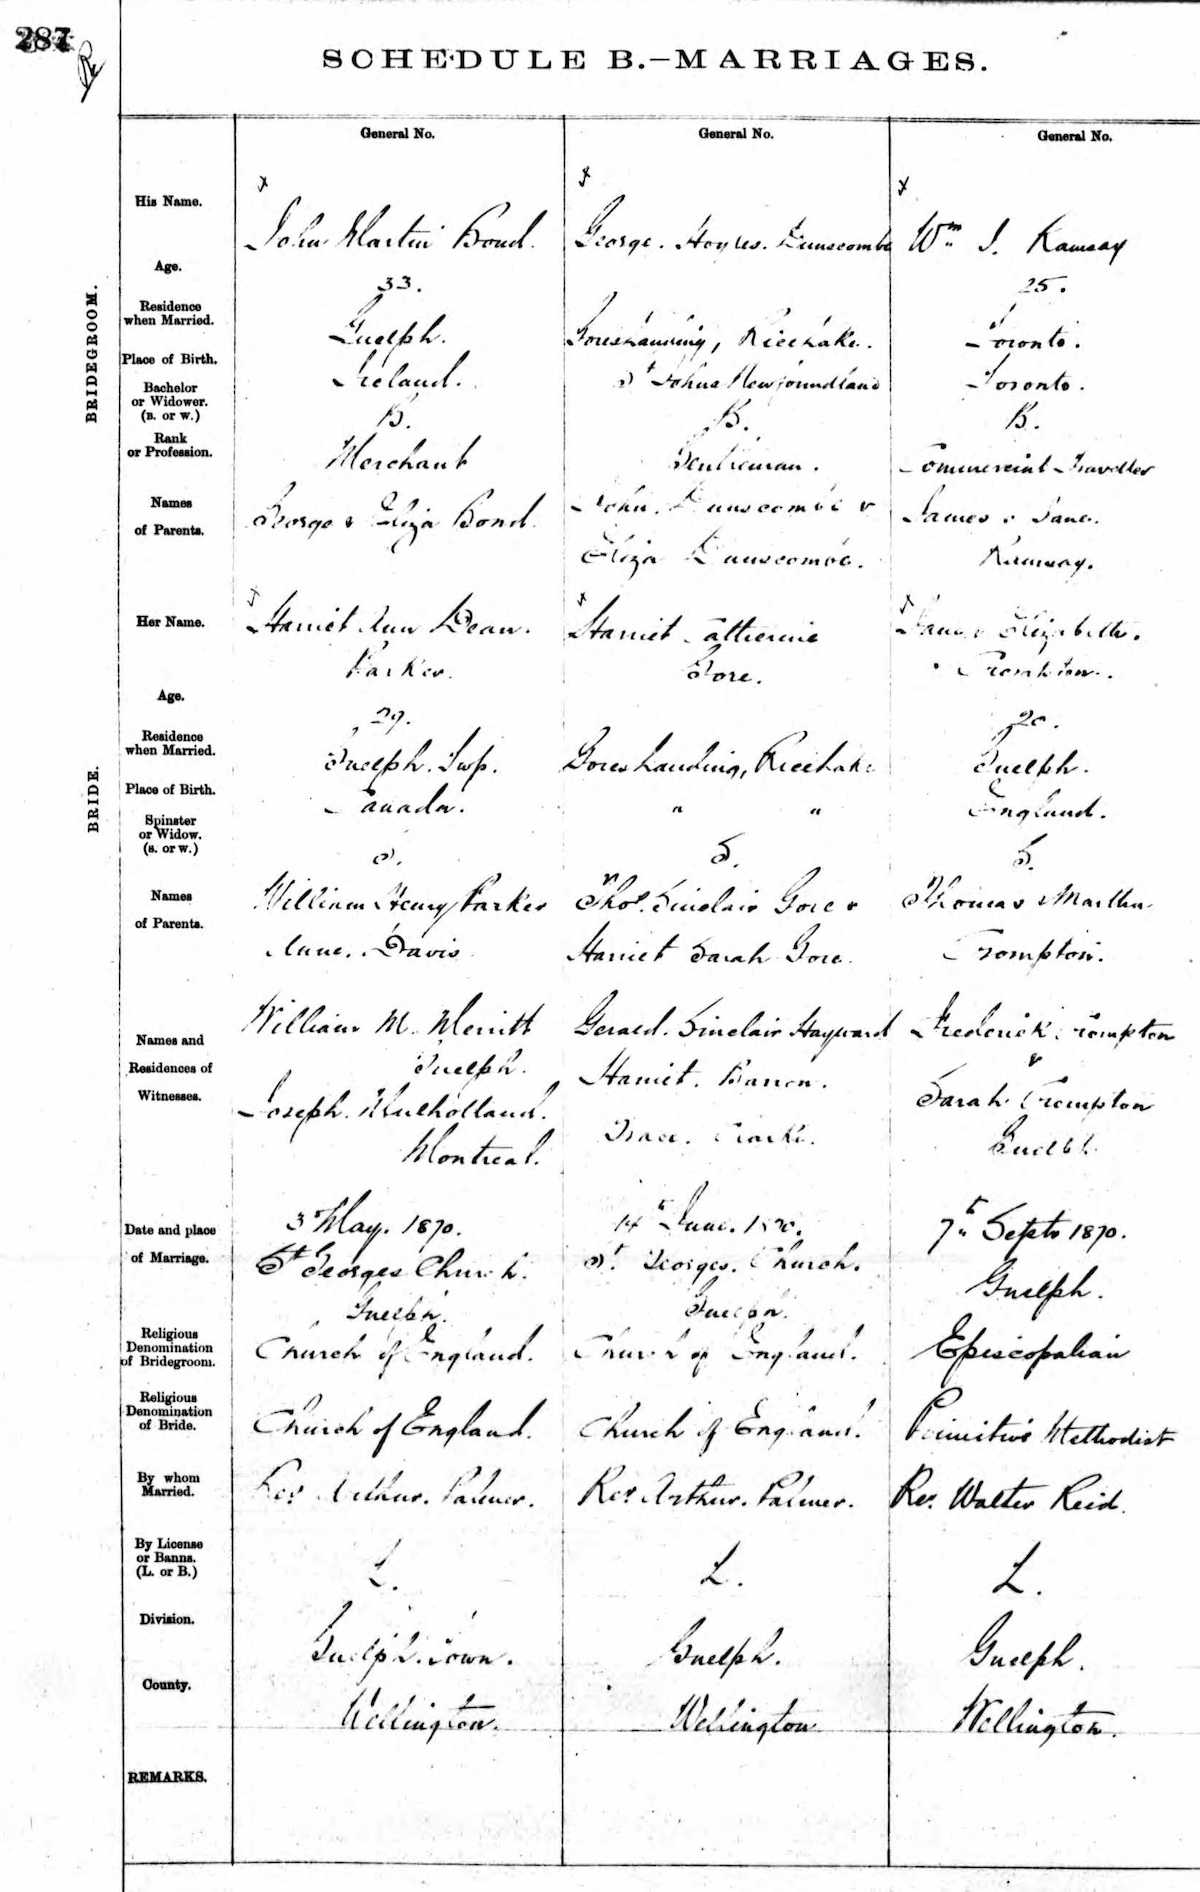 287
SCHEDULE B.—MARRIAGES.
General No.
General No.
General No.
BRIDEGROOM.
His Name.
John Martin Bond.
George. Hoyles. Dunscombe
Wm J. Ramsay
Age.
33.
25.
Residence
when Married.
Guelph.
Goreslanding, Ricelake.
Toronto.
Place of Birth.
Ireland.
St Johns Newfoundland
Toronto.
Bachelor
or Widower.
(B. or W.)
B.
B.
B.
Rank
or Profession.
Merchant
Gentleman.
Commercial Traveller
Names
of Parents.
George & Eliza Bond.
John. Dunscombe &
Eliza Dunscombe.
James & Jane.
Ramsay.
BRIDE.
Her Name.
Harriet Ann Dean.
Parker.
Harriet Catherine
Gore.
Elizabeth.
Crompton.
Age.
29.
20.
Residence
when Married.
Guelph. Twp.
Goreslanding, Ricelake
Guelph.
Place of Birth.
Canada.
" "
England.
Spinster
or Widow.
(S. or W.)
S.
S.
S.
Names
of Parents.
William Henry Parker
Anne. Davis
Thos. Sinclair Gore &
Harriet Sarah Gore.
Thomas & Martha
Crompton.
Names and
Residences of
Witnesses.
William M. Merritt
Guelph.
Joseph. Mulholland.
Montreal.
Gerald. Sinclair Hayward
Harriet. Barron.
Grace.
Frederick Crompton
&
Sarah Crompton
Guelph.
Date and place
of Marriage.
3 May. 1870.
St Georges Church.
Guelph.
14th June. 1870.
St. Georges. Church.
Guelph.
7th Septr 1870.
Guelph.
Religious
Denomination
of Bridegroom.
Church of England.
Church of England.
Episcopalian
Religious
Denomination
of Bride.
Church of England.
Church of England.
Primitive Methodist
By whom
Married.
Rev Arthur. Palmer.
Rev. Arthur. Palmer.
Rev. Walter Reid.
By License
or Banns.
(L. or B.)
L.
L.
L.
Division.
Guelph. Town.
Guelph.
Guelph.
County.
Wellington.
Wellington
Wellington.
REMARKS.